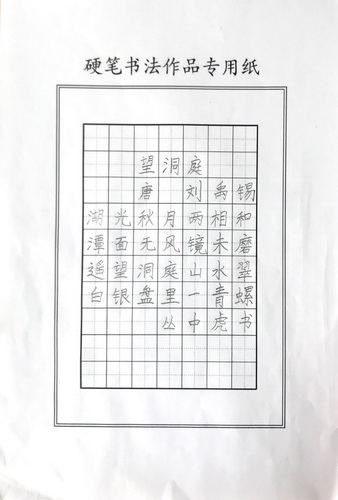 硬笔书法作品专用纸
望洞庭
唐 刘禹锡
湖光秋月两相和
潭面无风镜未磨
遥望洞庭山水翠
白银盘里一青螺
丛中虎书